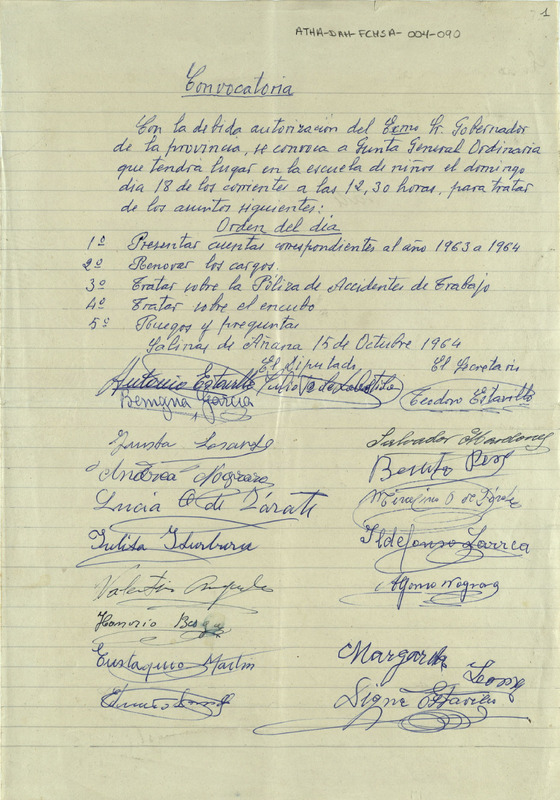 1
ATHA-DAH-FCHSA-004-090
Convocatoria
Con la debida autorización del Exmo Sr. Gobernador
de la provincia, se convoca a Junta General Ordinaria
que tendrá lugar en la escuela de niños el domingo
dia 18 de los corrientes a las 12,30 horas, para tratar
de los asuntos siguientes:
Orden del dia
1º Presentar cuentas correspondientes al año 1963 a 1964
2º Renovar los cargos.
3º Tratar sobre la Póliza de Accidentes de Trabajo
4º Tratar sobre el encubo
5º Ruegos y preguntas
Salinas de Añana 15 de Octubre 1964
El Diputado El Secretario
Antonio Estavillo Julio Teodoro Estavillo
Benigna García
Salvador
Andrea Benito
Lucia O. de Zárate
Julita Ildefonso Larrea
Valentin Alfonso
Honorio
Eustaquio Martin Margarita
Digna Estavillo